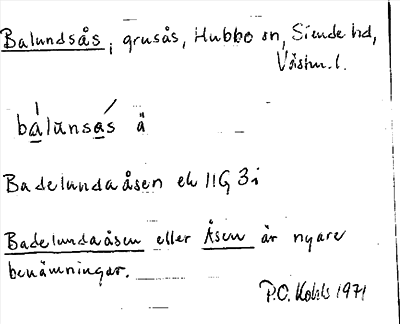 Balundsås, grusås, Hubbo sn, Siende hd,
Västm. l.
balŭnsas ä
Badelundaåsen ek 11G 3i
Badelundaåsen eller Åsen är nyare
benämningar.
P.O. 1971